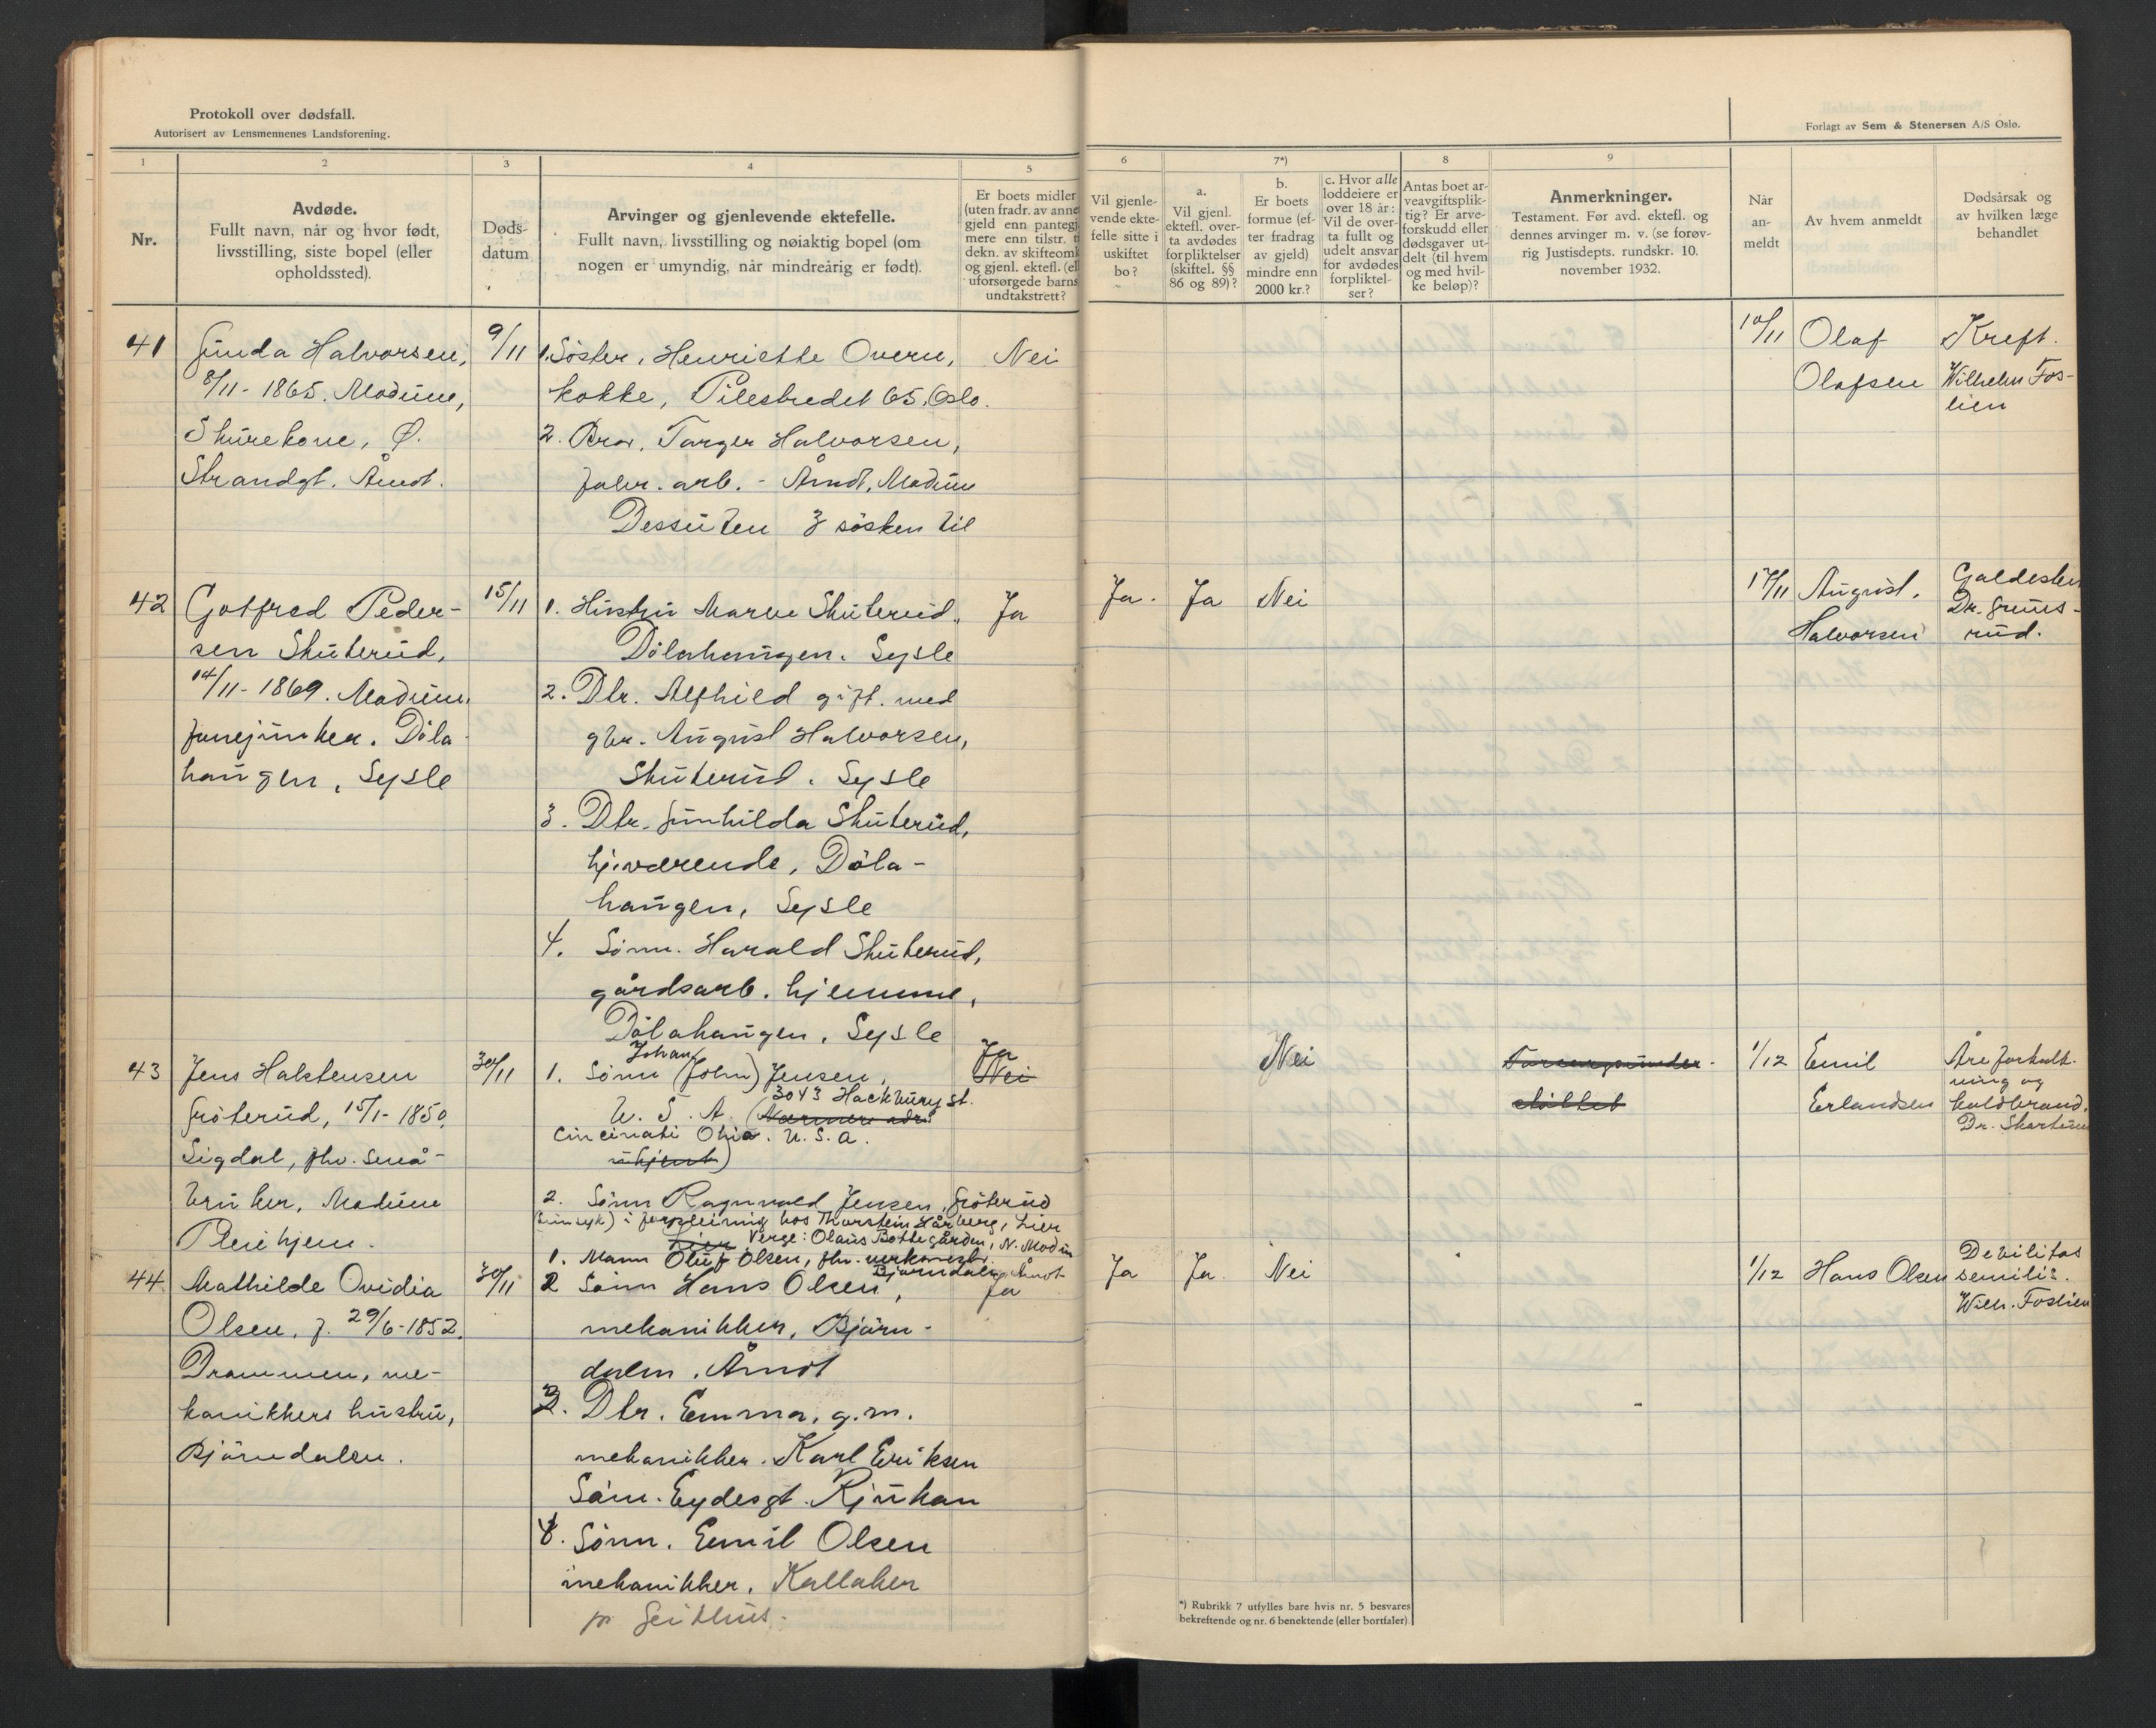 Protokoll over dødsfall.
Autorisert av Lensmennenes Landsforening.
Forlagt av Sem & Stenersen A/S Oslo.
1
2
3
4
5
6
7*)
8
9
Nr.
Avdøde.
Fullt navn, når og hvor født,
livsstilling, siste bopel (eller
opholdssted).
Døds-
datum
Arvinger og gjenlevende ektefelle.
Fullt navn, livsstilling og nøiaktig bopel (om
nogen er umyndig, når mindreårig er født).
Er boets midler
(uten fradr. av anne
gjeld enn pantegj
mere enn tilstr. t
dekn. av skifteomk
og gjenl. ektef. (el
uforsørgede barns
undtakstrett?
Vil gjenle-
vende ekte-
felle sitte i
uskiftet
bo?
a.
Vil gjenl.
ektefl. over-
ta avdødes
forpliktelser
(skiftel. §§
86 og 89)?
b.
Er boets
formue (ef-
ter fradrag
av gjeld)
mindre enn
2000 kr.?
c. Hvor alle
loddeiere er
over 18 år:
Vil de over-
ta fullt og
udelt ansvar
for avdødes
forpliktel-
ser?
Antas boet ar-
veavgiftsplik-
tig? Er arve-
forskudd eller
dødsgaver ut-
delt (til hvem
og med hvil-
ke beløp)?
Anmerkninger.
Testament. Før avd. ektefl. og
dennes arvinger m. v. (se forøv-
rig Justisdepts. rundskr. 10.
november 1932.
Når
an-
meldt
Av hvem anmeldt
Dødsårsak og
av hvilken læge
behandlet
41
Gunda Halvorsen,
8/11 - 1865. Modum,
Skurekone, Ø.
Strandgt. Åmot.
9/11
1. Søster, Henriette Overn,
kokke, Pilestredet 65, Oslo.
2. Bror, Torger Halvorsen,
fabr. arb. - Åmot, Modum
Dessuten 3 søsken til
Nei
10/11
Olaf
Olafsen
Kreft.
Wilhelm Fos-
lien
42
Gotfred Peder-
sen Skuterud,
14/11 - 1869. Modum,
Døla-
haugen, Sysle
15/11
1. Hustru Maren Skuterud,
Dølahaugen. Sysle
2. Dtr. Alfhild gift. med
gbr. August Halvorsen,
Skuterud. Sysle
3. Dtr. Gunhilda Skuterud,
hj.værende, Døla-
haugen, Sysle
4. Sønn. Harald Skuterud,
gårdsarb. hjemme,
Dølahaugen, Sysle
Ja
Ja.
Ja
Nei
17/11
August.
Halvorsen
Galdesten
Dr. Gruns-
rud.
43
Jens Halstensen
Grøterud, 15/1 - 1850,
Sigdal, fhv. små-
bruker, Modum
Pleiehjem.
30/11
Johan
1. Sønn (John) Jensen,
3043 Hackbury st.
U. S. A. (Nærmere adr.
Cincinati Ohio. U. S. A.
ukjent)
2. Sønn Ragnvald Jensen, Grøterud
(sinnsyk) i forpleining hos Thorstein Hårberg, Lier
Lier Verge: Olaus Bottegården, N. Modum
Ja
Nei
Nei
1/12
Emil
Erlandsen
Åreforkalk-
ning og
koldbrand.
44
Mathilde Ovidia
Olsen, f. 29/6 - 1852.
Drammen, me-
kanikkers hustru,
Bjørndalen.
30/11
1. Mann Oluf Olsen, fhv. verksmest.
Bjørndalen, Åmot
2 Sønn Hans Olsen,
mekanikker, Bjørn-
dalen. Åmot
3. Dtr. Emma, g. m.
mekanikker. Karl Eriksen
Sam. Eydesgt. Rjukan
4. Sønn. Emil Olsen
mekanikker, Kallaker
pr Geithus.
Ja
Ja
Ja.
Nei
1/12
Hans Olsen
Debilitas
senilis.
Wilh. Foslien
*) Rubrikk 7 utfylles bare hvis nr. 5 besvares
bekreftende og nr. 6 benektende (eller bortfaler)